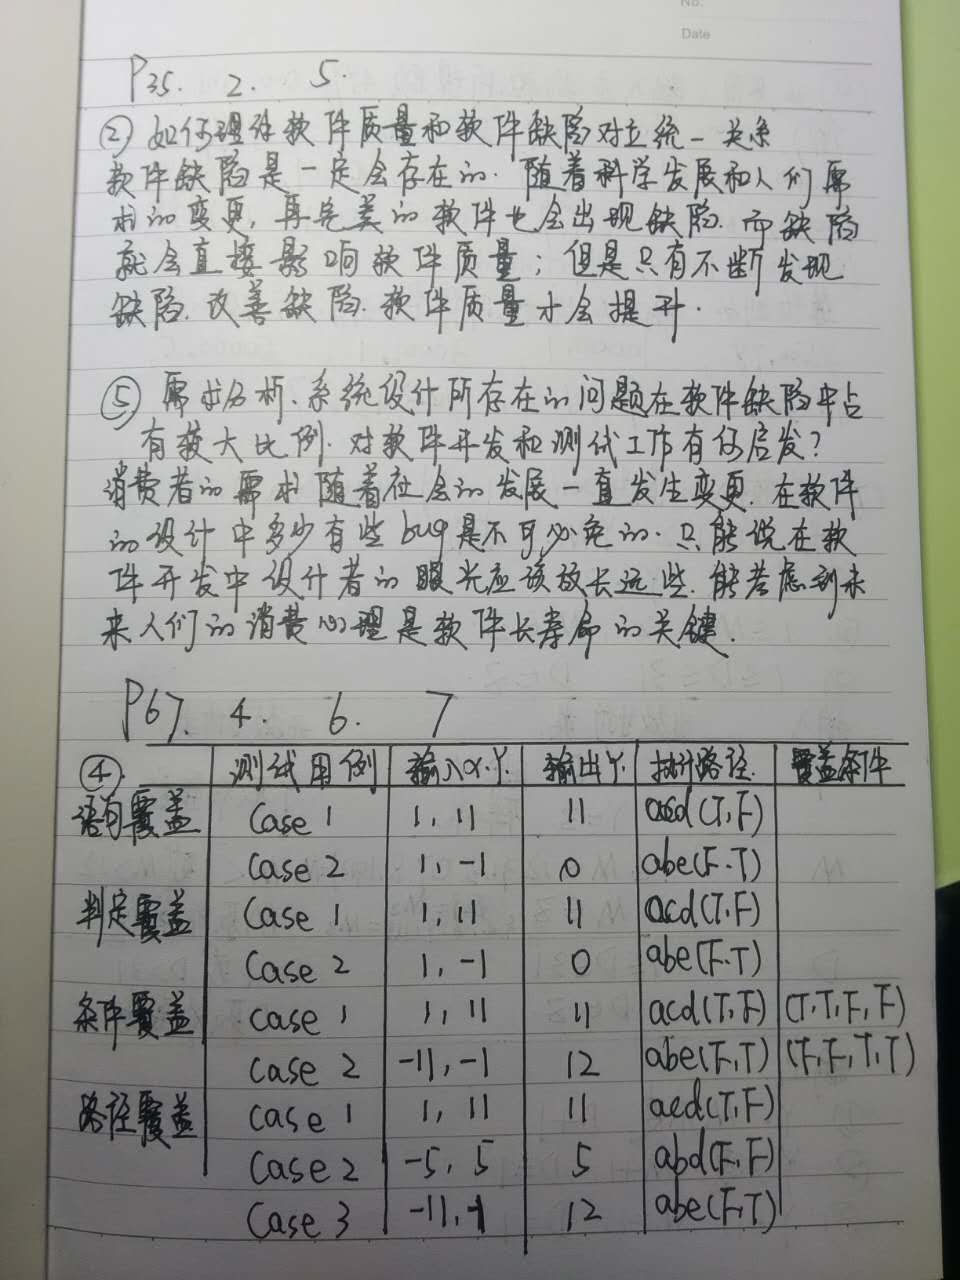 No.
Date
P35. 2. 5.
② 如何理解软件质量和软件缺陷对立统一关系
软件缺陷是一定会存在的. 随着科学发展和人们需
求的变更, 再完美的软件也会出现缺陷. 而缺陷
就会直接影响软件质量; 但是只有不断发现
缺陷. 改善缺陷. 软件质量才会提升.
⑤ 需求分析、系统设计所存在的问题在软件缺陷中占
有较大比例. 对软件开发和测试工作有何启发?
消费者的需求随着社会的发展一直发生变更. 在软件
的设计中多少有些bug是不可必免的. 只能说在软
件开发中设计者的眼光应该放长远些. 能考虑到未
来人们的消费心理是软件长寿命的关键.
P67. 4. 6. 7
④. 测试用例 输入x.Y. 输出Y. 执行路径. 覆盖条件
语句覆盖 Case 1 1, 11 11 acd(T,F)
Case 2 1, -1 0 abe(F.T)
判定覆盖 Case 1 1, 11 11 acd(T,F)
Case 2 1, -1 0 abe(F.T)
条件覆盖 Case 1 1, 11 11 acd(T,F) (T,T,F,F)
Case 2 -11, -1 12 abe(F,T) (F,F,T,T)
路径覆盖 Case 1 1, 11 11 acd(T,F)
Case 2 -5, 5 5 abd(F,F)
Case 3 -11,-1 12 abe(F,T)